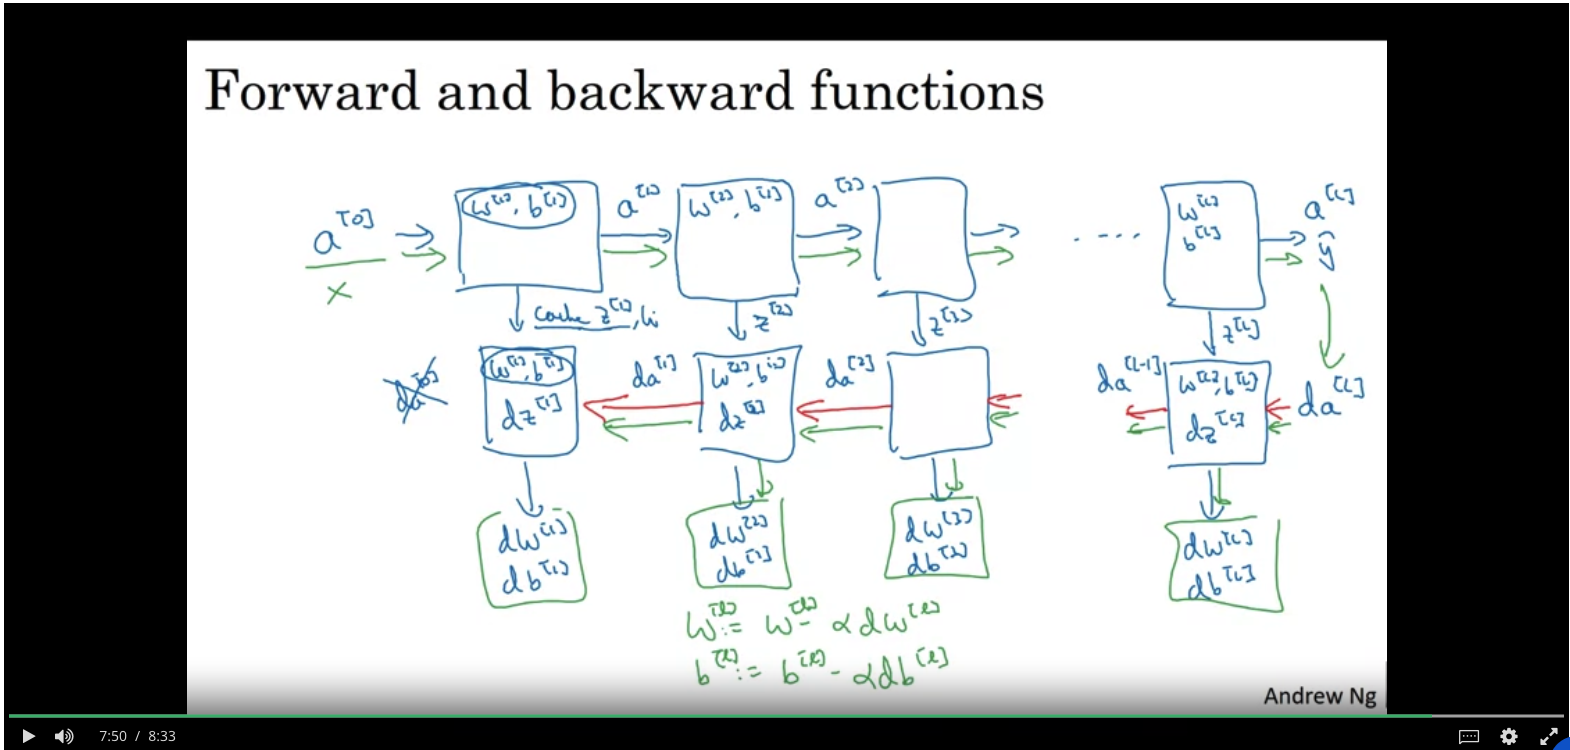 Forward and backward functions
a^[0] w^[1], b^[1] a^[1] w^[2], b^[2] a^[2] .... w^[L] a^[L]
x b^[L] ŷ
cache z^[1], z^[2] z^[3] z^[L]
da^[0] w^[1], b^[1] da^[1] w^[2], b^[2] da^[2] da^[L-1] w^[L], b^[L] da^[L]
dz^[1] dz^[2] dz^[L]
dw^[1] dw^[2] dw^[3] dw^[L]
db^[1] db^[2] db^[3] db^[L]
w^[l] := w^[l] - αdw^[l]
b^[l] := b^[l] - αdb^[l]
Andrew Ng
7:50 / 8:33